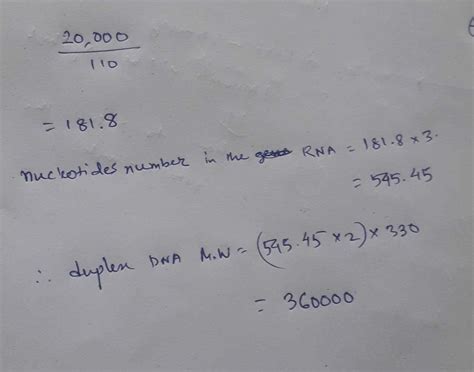 20,000
110
= 181.8
nucleotides number in the genes RNA = 181.8 × 3.
= 545.45
∴ duplex DNA M.W = (545.45 × 2) × 330
= 360000